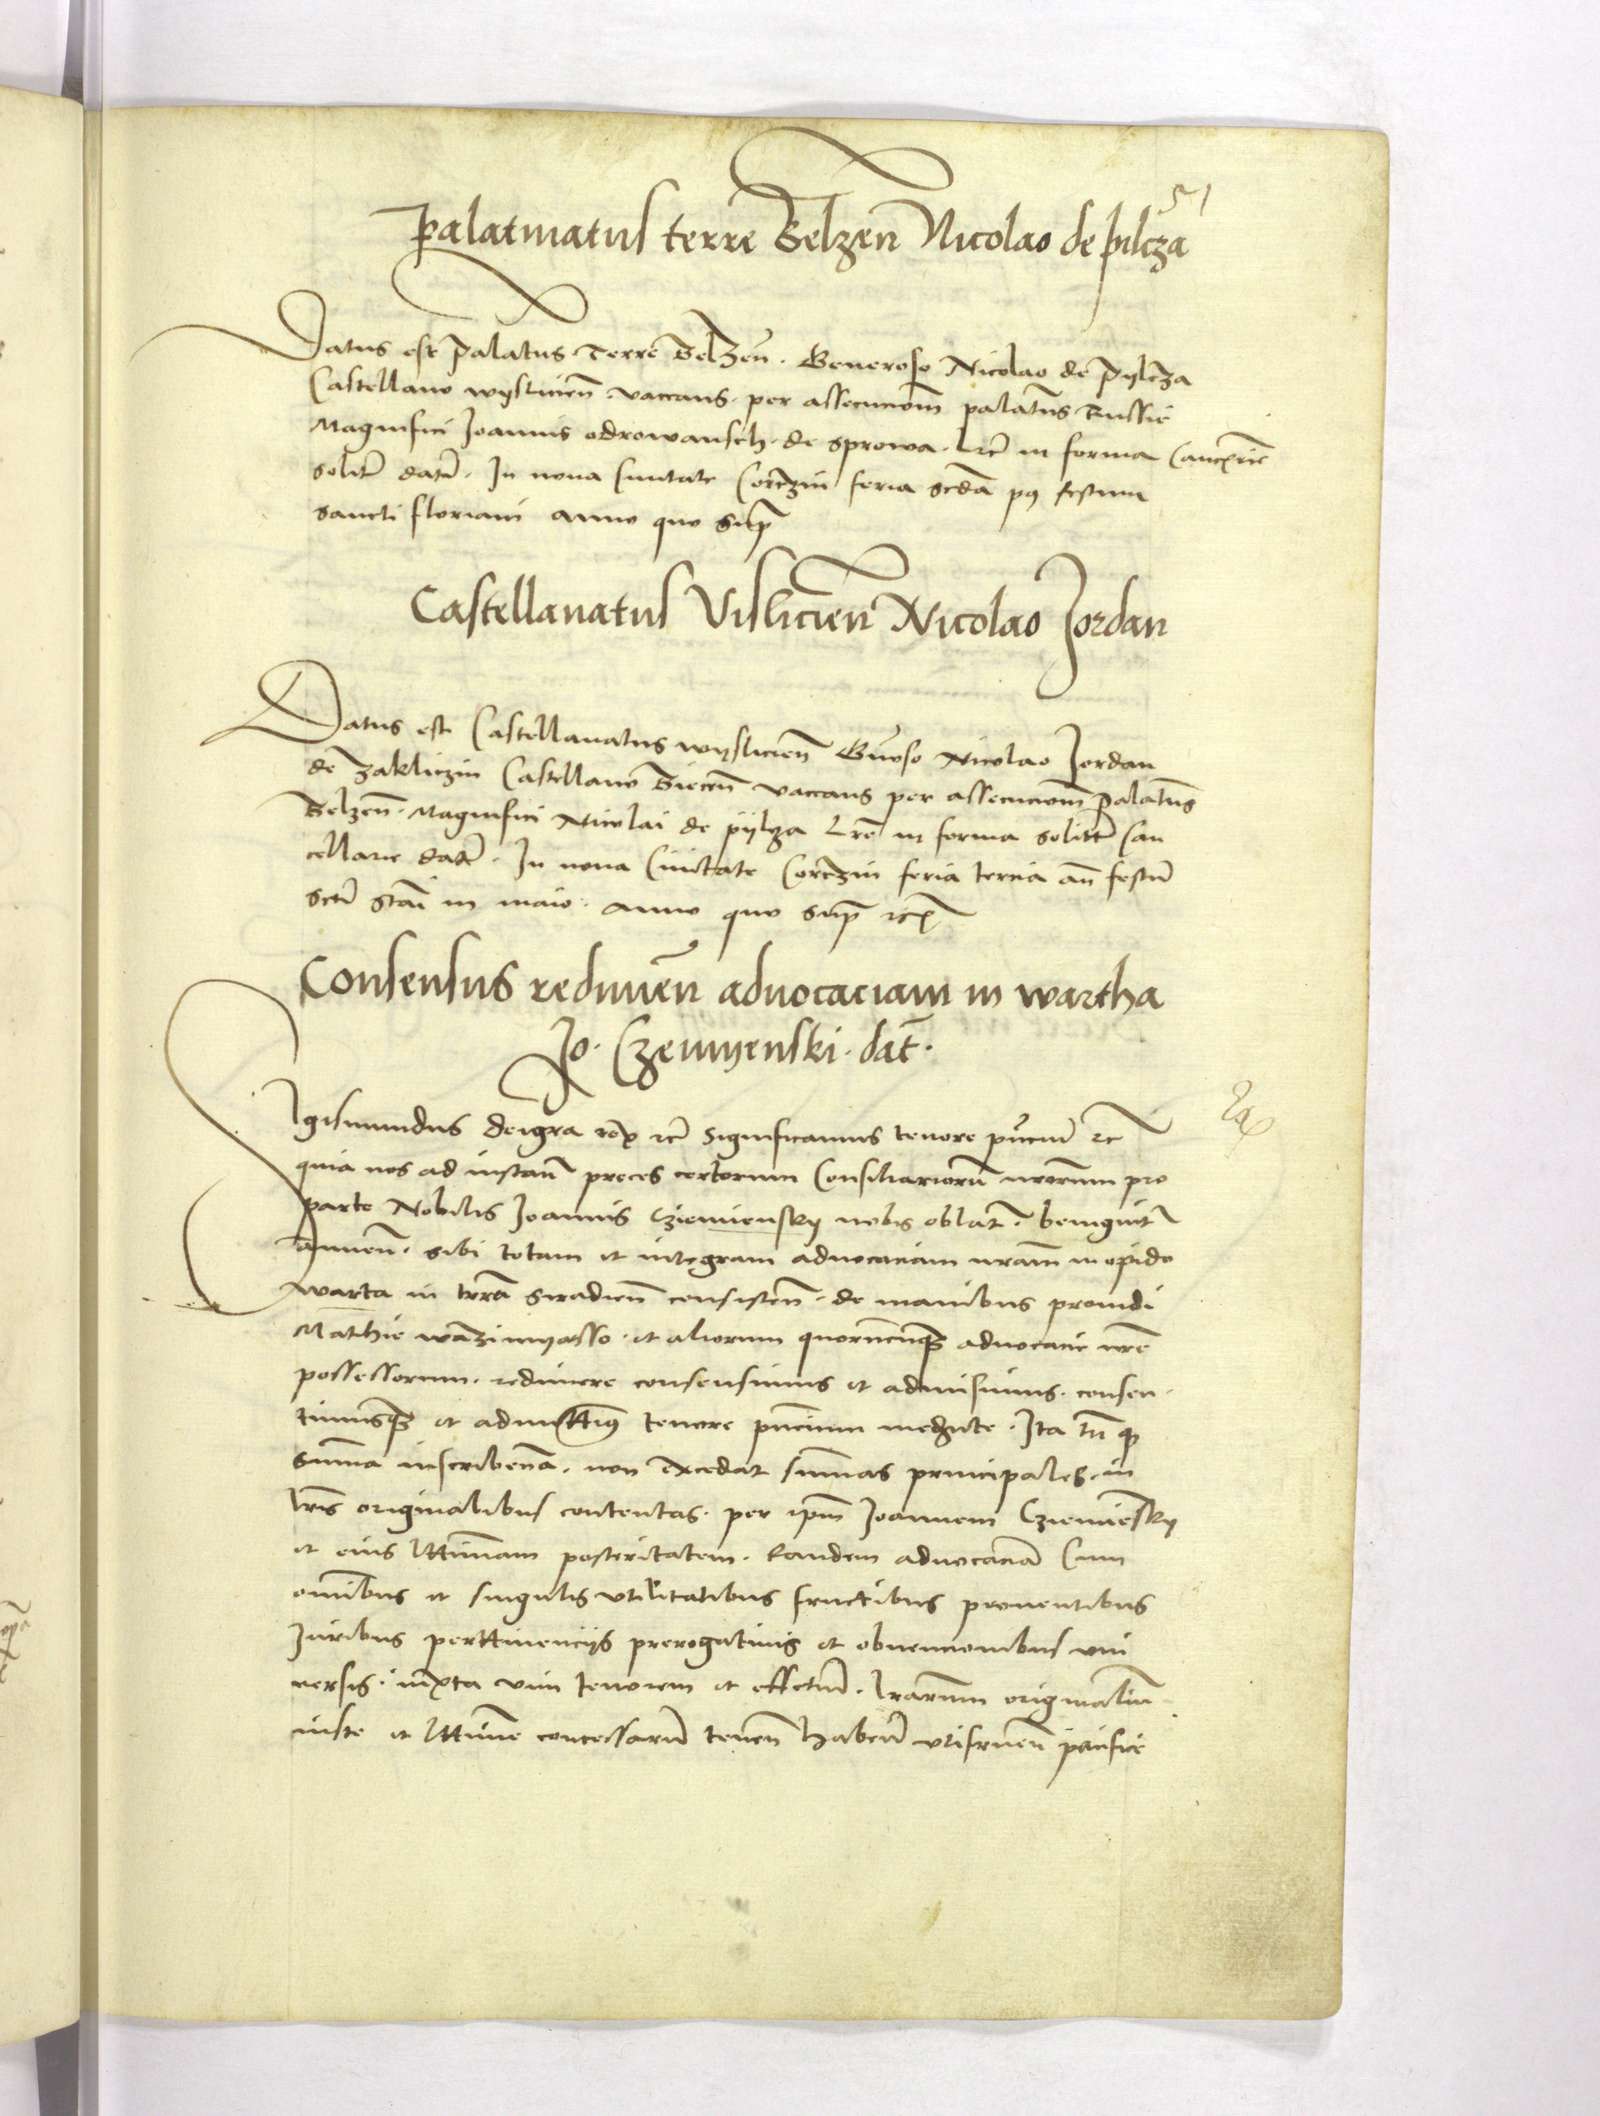 51
Palatinatus terre Belzen Nicolao de pilcza
Datus est palatus terre Belzen. Generoso Nicolao de pylcza
Castellano wyslicien vaccans per assecuciom palatus Russie
Magnifici Joannis odrowansch de sprowa. Lre in forma Canclrie
solite date. In nova Civitate Corczin feria scda pt festum
sancti floriani anno quo sup
Castellanatus Vislicien Nicolao Jordan
Datus est Castellanatus wyslicien Gnoso Nicolao Jordan
de zakliczin Castellano Biecen vaccans per assecuciom palatus
Belzen. Magnifici Nicolai de pylcza Lre in forma solitte Can
cellarie date. In nova Civitate Corczin feria tercia an festu
scti Stai in maio. anno quo sup etc
Consensus redimen advocaciam in wartha
Jo. Czemyenski. dat.
Igismundus dei gra rex etc Significamus tenore pncium etc
quia nos ad instan preces certorum Consiliarioru nrorum pro
parte Nobilis Joannis nobis oblat. benignit
annuen. sibi totam et integram advocaciam nram in opido
warta in terra Siradien consisten. de manibus providi
Mathie et aliorum quorucunqz advocacie nre
possessorum. redimere consensimus et admisimus. consen
timusqz et admittimus tenore pncium mediante. Ita tn qz
summa inscribenda. non excedat summas principales in
lris originalibus contentas. per ipm Joannem
et eius lttimam posteritatem. Eandem advocacia Cum
omnibus et singulis utilitatibus fructibus proventibus
Juribus perttinencijs prerogativis et obvencionibus uni
versis. iuxta vim tenorem et effectu. lrarum originaliu
iuste et lttime concessaru tenen haben utifruen pacifice